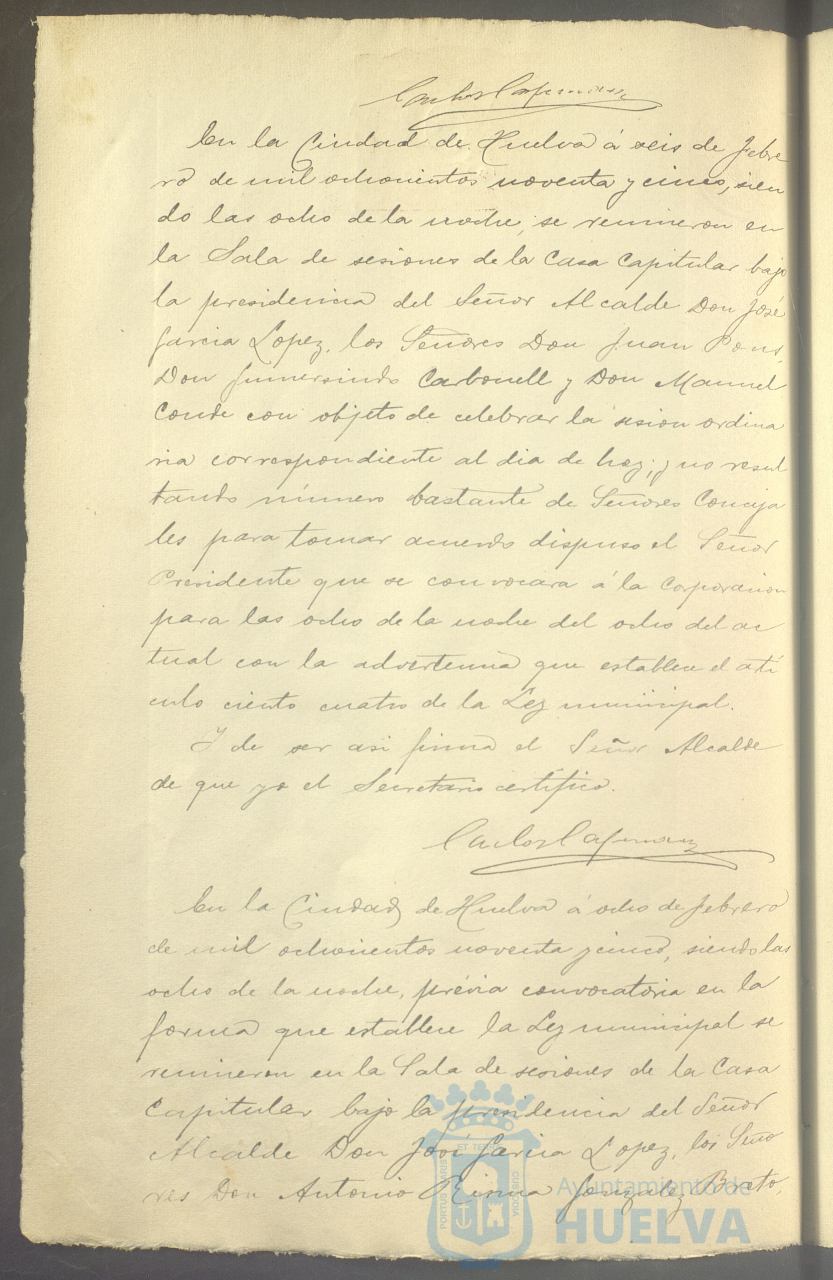 En la Ciudad de Huelva á seis de febre
ro de mil ochocientos noventa y cinco, sien
do las ocho de la noche, se reunieron en
la Sala de sesiones de la Casa Capitular bajo
la presidencia del Señor Alcalde Don José
Garcia Lopez, los Señores Don Juan Pons,
Don Gumersindo Carbonell y Don Manuel
Conde con objeto de celebrar la sesion ordina
ria correspondiente al dia de hoy; y no resul
tando número bastante de Señores Conceja
les para tomar acuerdo dispuso el Señor
Presidente que se convocara á la Corporacion
para las ocho de la noche del ocho del ac
tual con la advertencia que establece el artí
culo ciento cuatro de la Ley municipal.
Y de ser asi firma el Señor Alcalde
de que yo el Secretario certifico.
Carlos
En la Ciudad de Huelva á ocho de febrero
de mil ochocientos noventa y cinco, siendo las
ocho de la noche, prévia convocatoria en la
forma que establece la Ley municipal se
reunieron en la Sala de sesiones de la Casa
Capitular bajo la presidencia del Señor
Alcalde Don José Garcia Lopez, los Seño
res Don Antonio González Breto,
Ayuntamiento de
HUELVA